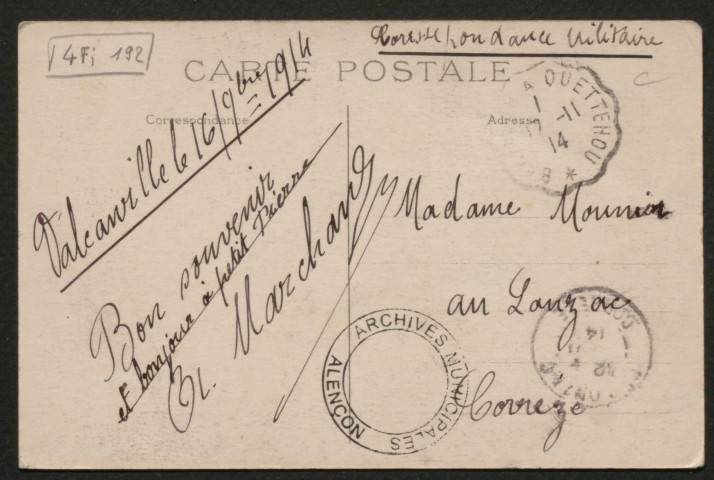 4Fi 192
Correspondance Militaire
CARTE POSTALE
Correspondance
Adresse
Valcanville le 16/9bre 1914
Bon souvenir
et bonjour à petit Pierre
Marchand
Madame Mounier
au Lonzac
Corrèze
QUETTEHOU
-11
14
ARCHIVES MUNICIPALES
ALENÇON